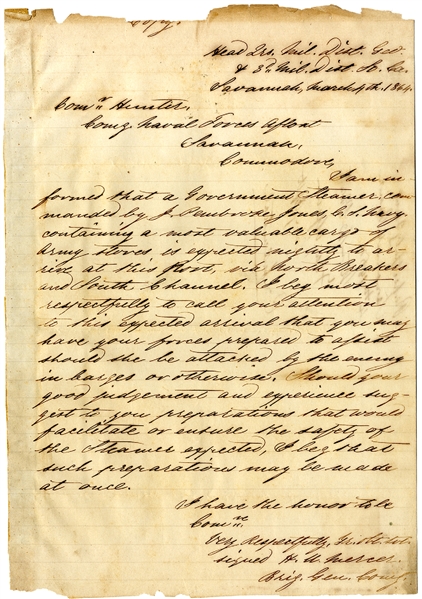 Copy.
Head Qrs. Mil. Dist. Geo.
& 3d Mil. Dist. So. Ca.
Savannah, March 4th. 1864.
Comr. Hunter,
Comg. Naval Forces Afloat
Savannah,
Commodore,
I am in-
formed that a Government Steamer, com-
manded by J. Pembroke Jones, C. S. Navy
containing a most valuable cargo of
Army stores is expected nightly to ar-
rive at this Port, via North Breakers
and South Channel. I beg most
respectfully to call your attention
to this expected arrival that you may
have your forces prepared to assist
should she be attacked by the enemy
in barges or otherwise. Should your
good judgement and experience sug-
gest to you preparations that would
facilitate or ensure the safety of
the Steamer expected, I beg that
such preparations may be made
at once.
I have the honor to be
Comre.
Very Respectfully, Yr. Ob. Svt.
signed H. W. Mercer
Brig. Gen. Comg.